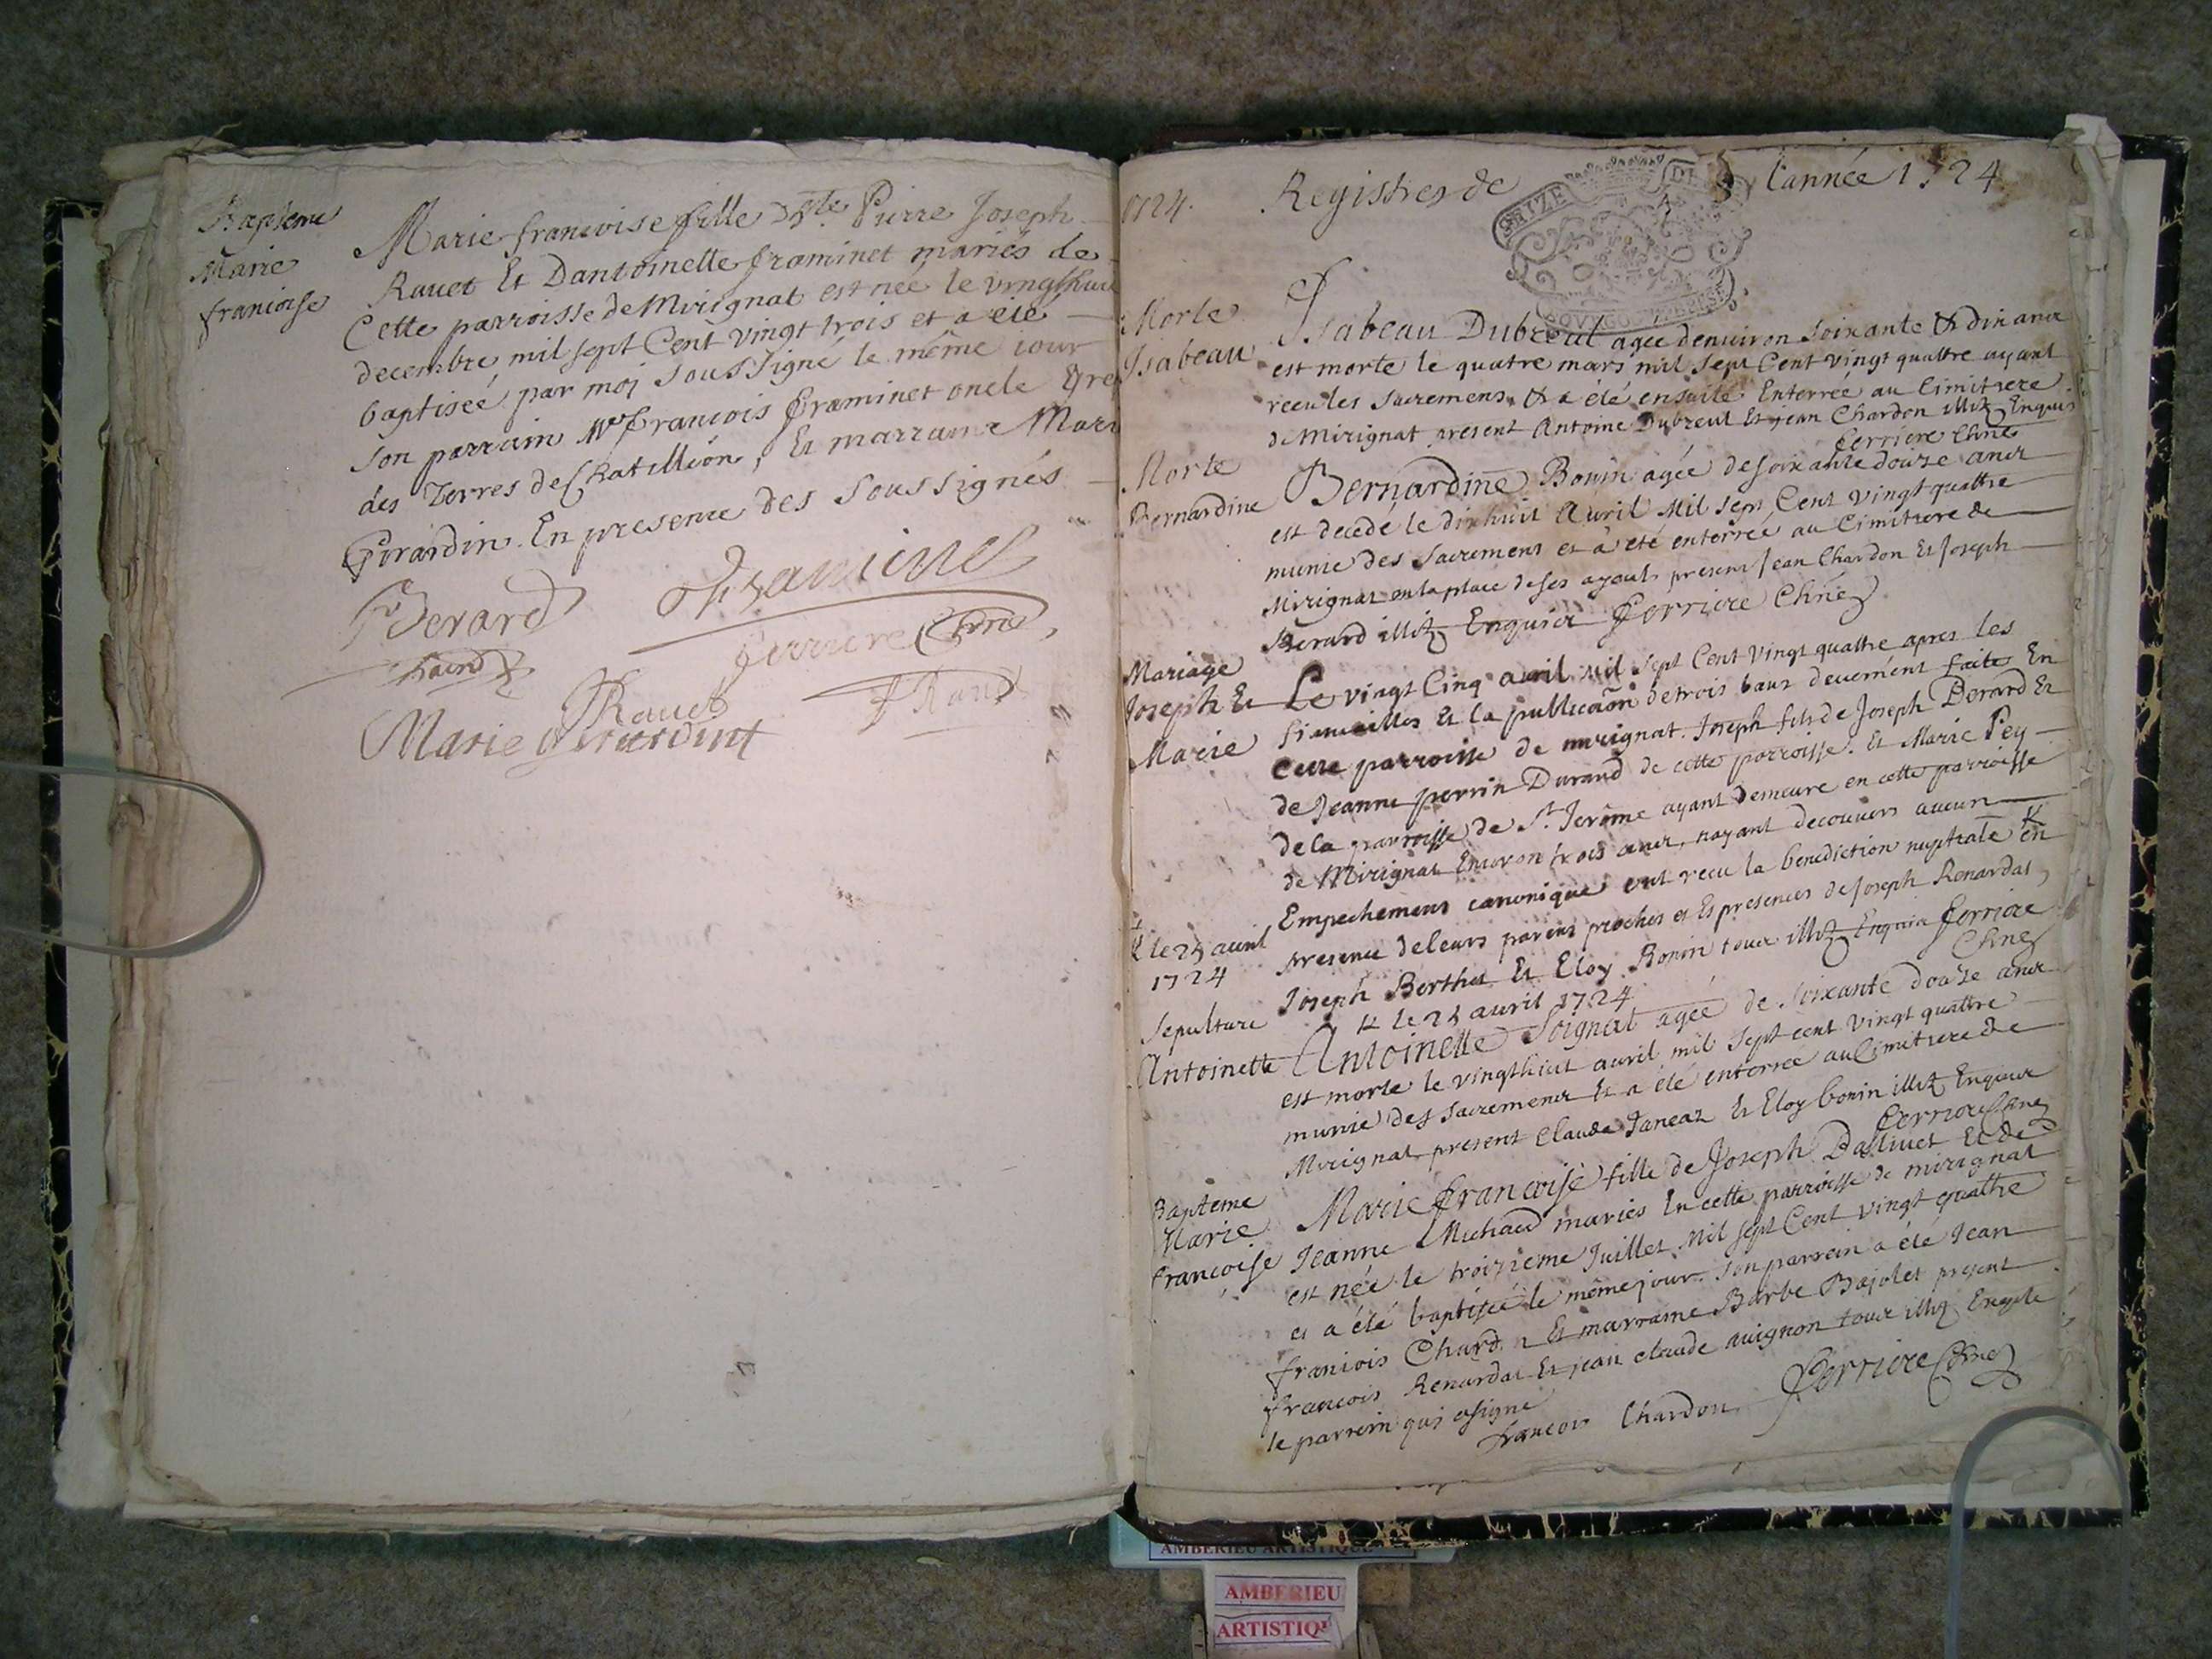 Bapteme
Marie
francoise
Marie francoise fille Pierre Joseph
Rauet Et Dantoinette framinet mariés de
Cette parroisse de Mirignat est née le vingthuit
decembre mil sept Cent vingt trois et a eté
baptiseé par moj sousSigné le même iour
son parrain Mre francois framinet oncle
des Terres de Chatillion, Et marraine Marie
Girardin. En presence des Soussignés
Berard
framinet
ferriere
Rauet
Marie Girardint
1724.
Registres de l'année 1724
SEIZE DE
BOVRGO
Morte
Isabeau
Isabeau Dubreul agee denuiron soixante & dix aner
est morte le quatre mars mil sept Cent vingt quattre ayant
receu les sacremens, & a été ensuite Enterrée au Cimitiere
de Mirignat present Antoine Dubreul Et jean Chardon illitz Enquis
ferriere
Morte
Bernardine
Bernardine Bonin agée de soixante douze aner
est decedé le dixhuit Auril Mil sept Cent vingt quattre
munie des Sacremens et a été enterrée au Cimitiere de
Mirignat en la place de ses ayeuls present Jean Chardon Et Joseph
Berard illitz Enquier ferriere
Mariage
Joseph Et
Marie
Le vingt Cinq auril Mil sept Cent vingt quattre apres les
fiancailles Et la publicaon de trois bans deuement faite En
cette parroisse de mirignat. Joseph fils de Joseph Berard Et
de Jeanne perrin Durand de cette parroisse. Et Marie Pey
de la parroisse de St. Jerôme ayant demeure en cette parroisse
de Mirignat Enuiron trois aner, nayant decouuers aucun
Empechemens canonique ont receu la benediction nuptiale en
presence de leurs parens proches et Es presences de Joseph Renardat,
Joseph Berthet Et Eloy Bonin tous illitz Enquis ferriere
le 25 auril
1724
le 25 auril 1724
Sepulture
Antoinette
Antoinette Soignat agée de soixante douze aner
est morte le vingthiut auril mil sept cent vingt quattre
munie des sacremens Et a été enterree au Cimitiere de
Mirignat present Claude Janeaz Et Eloy bonin illitz Enquis
ferriere
Bapteme
Marie
francoise
Marie francoise fille de Joseph Baliuet Et de
Jeanne Michaud mariés En cette parroisse de mirignat
est née le troizieme Juillet Mil sept Cent vingt quattre
et a été baptisée le même jour. son parrein a été Jean
francois Chardon Et marraine Barbe Bajolet present
francois Renardat Et jean claude auignon tous illitz
le parrein qui a signe
francois Chardon ferriere
AMBERIEU ARTISTIQUE
AMBERIEU
ARTISTIQU